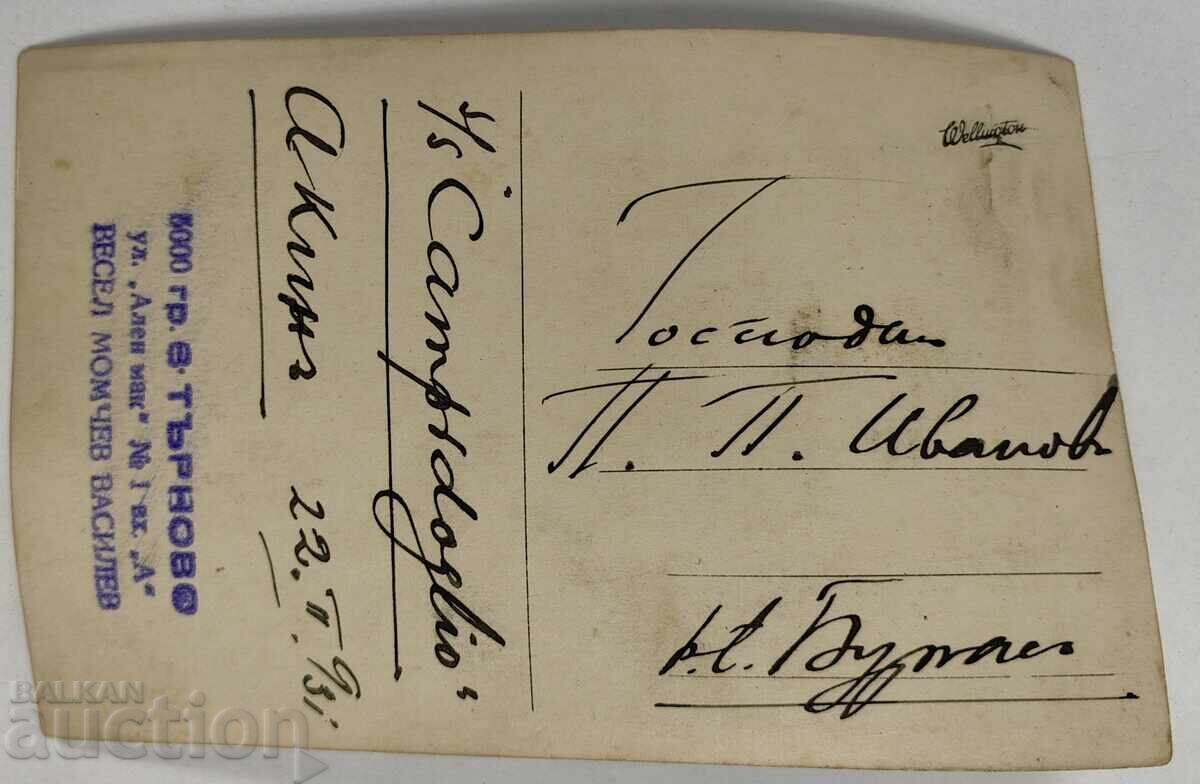 Wellington
Господин
П. П. Иванов
гр. Бургас
S/S "Campidoglio"
22. II. 931
5000 гр. В. ТЪРНОВО
ул. „Ален мак“ № 1 вх. „А“
ВЕСЕЛ МОМЧЕВ ВАСИЛЕВ
BALKAN
auction